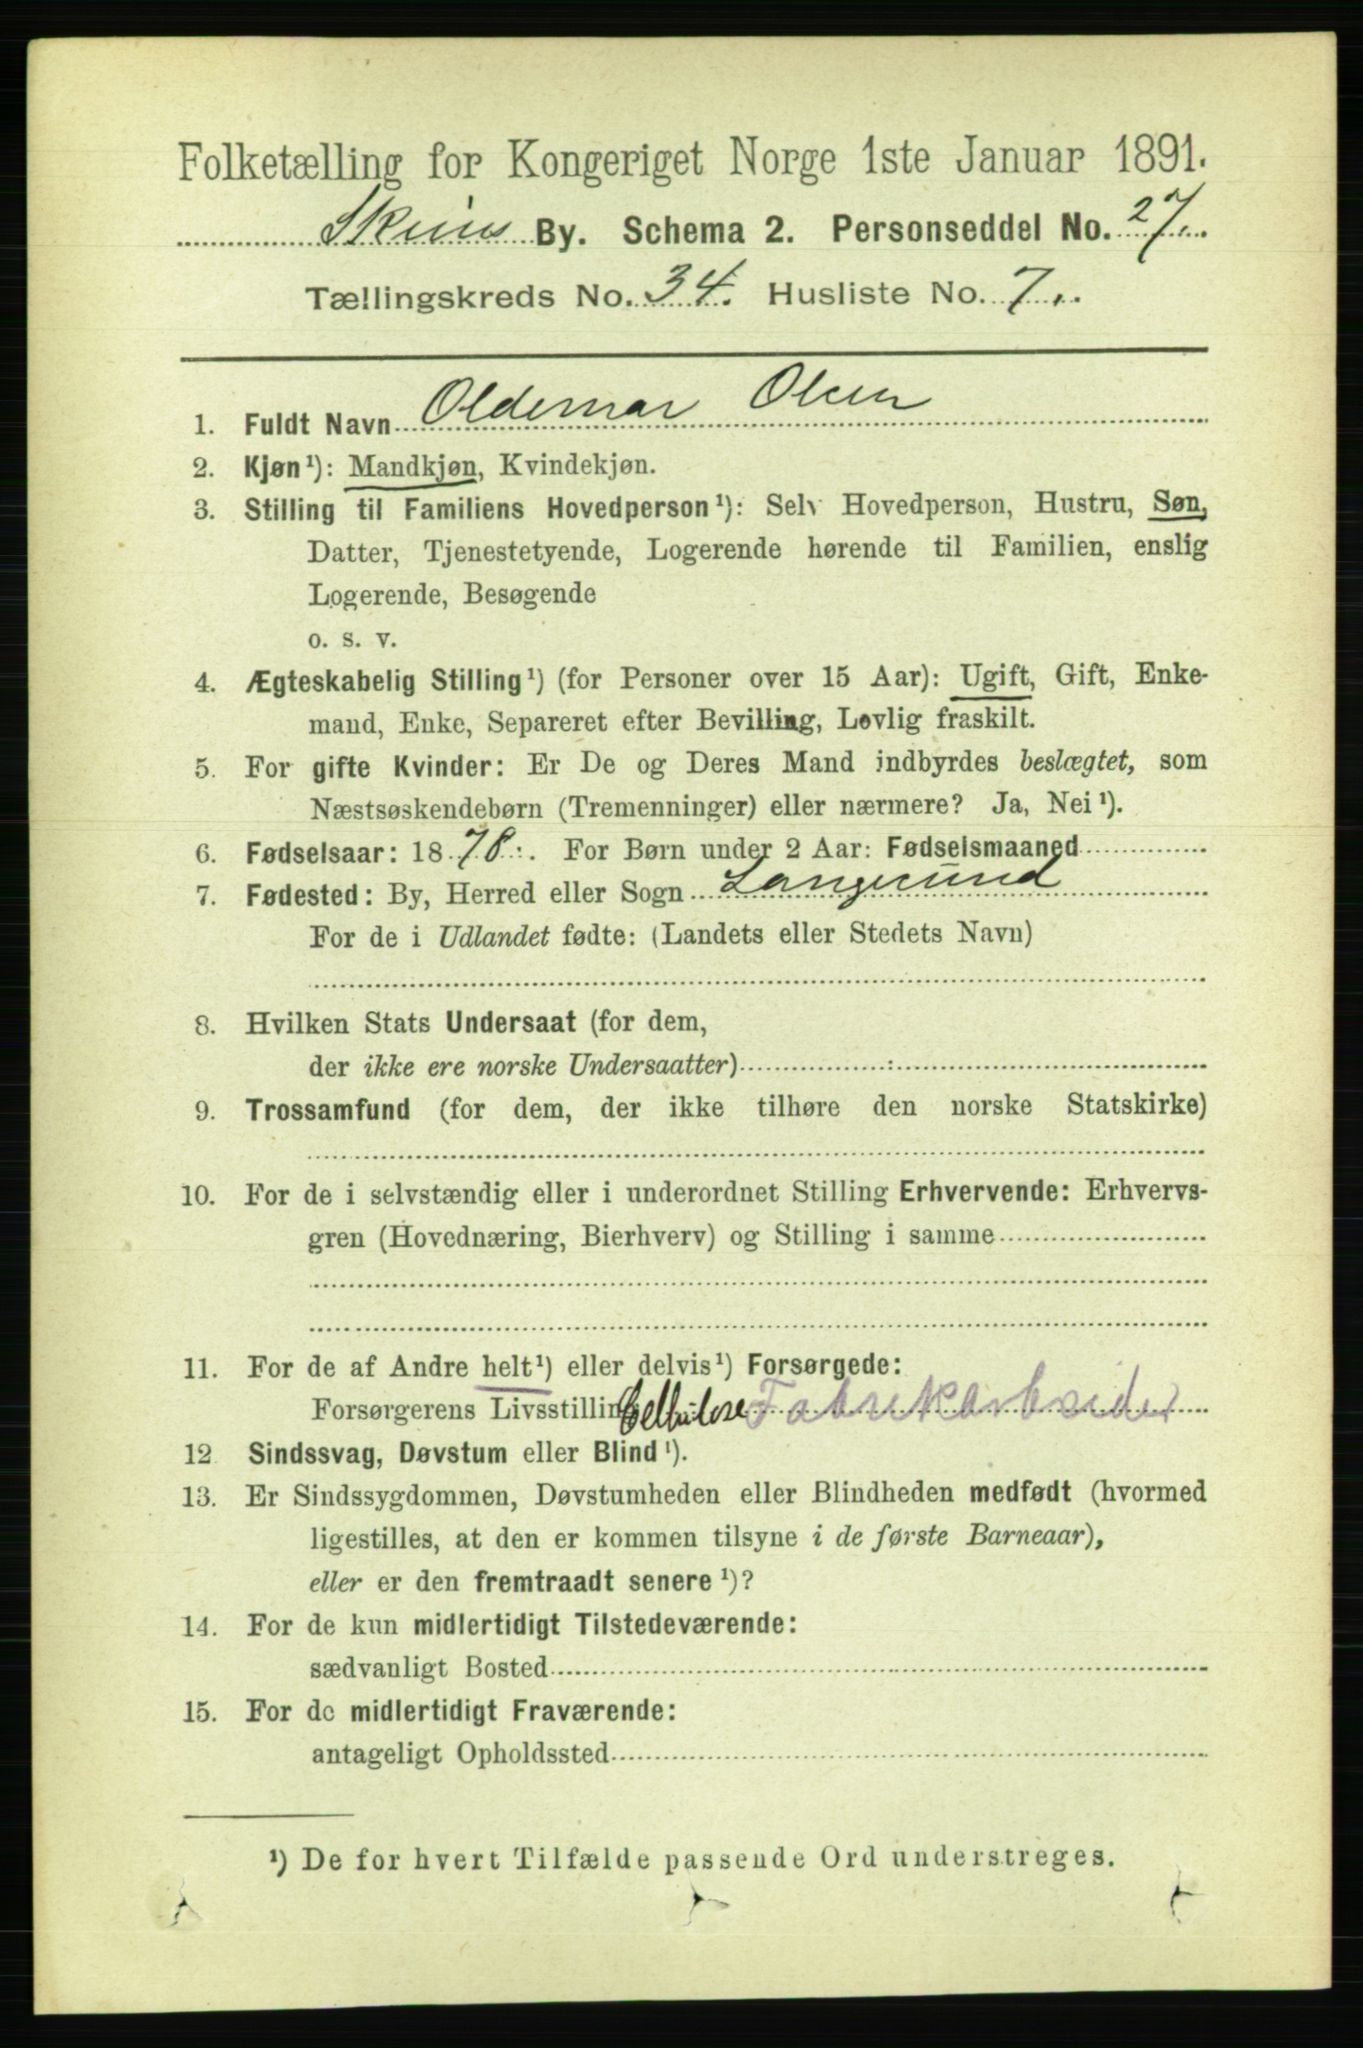 Folketælling for Kongeriget Norge 1ste Januar 1891.
Skiens By. Schema 2. Personseddel No. 27.
Tællingskreds No. 34. Husliste No. 7.
1. Fuldt Navn Oldemar Olsen
2. Kjøn¹): Mandkjøn, Kvindekjøn.
3. Stilling til Familiens Hovedperson¹): Selv Hovedperson, Hustru, Søn,
Datter, Tjenestetyende, Logerende hørende til Familien, enslig
Logerende, Besøgende
o. s. v.
4. Ægteskabelig Stilling¹) (for Personer over 15 Aar): Ugift, Gift, Enke-
mand, Enke, Separeret efter Bevilling, Lovlig fraskilt.
5. For gifte Kvinder: Er De og Deres Mand indbyrdes beslægtet, som
Næstsøskendebørn (Tremenninger) eller nærmere? Ja, Nei¹).
6. Fødselsaar: 1878. For Børn under 2 Aar: Fødselsmaaned
7. Fødested: By, Herred eller Sogn Langesund
For de i Udlandet fødte: (Landets eller Stedets Navn)
8. Hvilken Stats Undersaat (for dem,
der ikke ere norske Undersaatter)
9. Trossamfund (for dem, der ikke tilhøre den norske Statskirke)
10. For de i selvstændig eller i underordnet Stilling Erhvervende: Erhvervs-
gren (Hovednæring, Bierhverv) og Stilling i samme
11. For de af Andre helt¹) eller delvis¹) Forsørgede:
Forsørgerens Livsstilling Cellulose Fabrikarbeider
12 Sindssvag, Døvstum eller Blind¹).
13. Er Sindssygdommen, Døvstumheden eller Blindheden medfødt (hvormed
ligestilles, at den er kommen tilsyne i de første Barneaar),
eller er den fremtraadt senere¹)?
14. For de kun midlertidigt Tilstedeværende:
sædvanligt Bosted
15. For de midlertidigt Fraværende:
antageligt Opholdssted
¹) De for hvert Tilfælde passende Ord understreges.